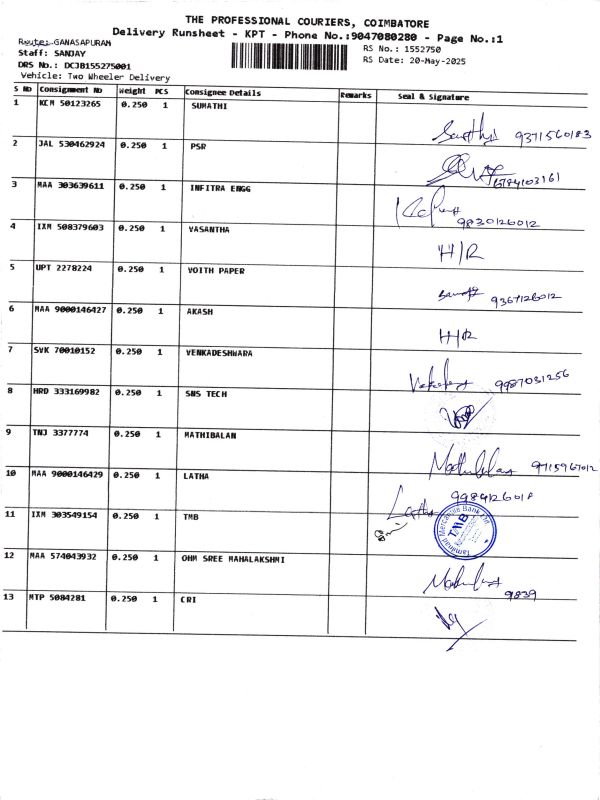 THE PROFESSIONAL COURIERS, COIMBATORE
Delivery Runsheet - KPT - Phone No.:9047080280 - Page No.:1
Route: GANASAPURAM
Staff: SANJAY
DRS No.: DCJB155275001
Vehicle: Two Wheeler Delivery
RS No.: 1552750
RS Date: 20-May-2025
S No Consignment No Weight PCS Consignee Details Remarks Seal & Signature
1 KCM 50123265 0.250 1 SUMATHI 9371560183
2 JAL 530462924 0.250 1 PSR 6784103161
3 MAA 303639611 0.250 1 INFITRA ENGG 9830126012
4 IXM 508379603 0.250 1 VASANTHA H/R
5 UPT 2278224 0.250 1 VOITH PAPER 9367126012
6 MAA 9000146427 0.250 1 AKASH H/R
7 SVK 70010152 0.250 1 VENKADESHWARA 9987031256
8 HRD 333169982 0.250 1 SNS TECH
9 TNJ 3377774 0.250 1 MATHIBALAN 9715967012
10 MAA 9000146429 0.250 1 LATHA Latha 9984126018
11 IXM 303549154 0.250 1 TMB
Tamilnad Mercantile Bank Ltd
TMB
12 MAA 574043932 0.250 1 OHM SREE MAHALAKSHMI 9839
13 MTP 5084281 0.250 1 CRI